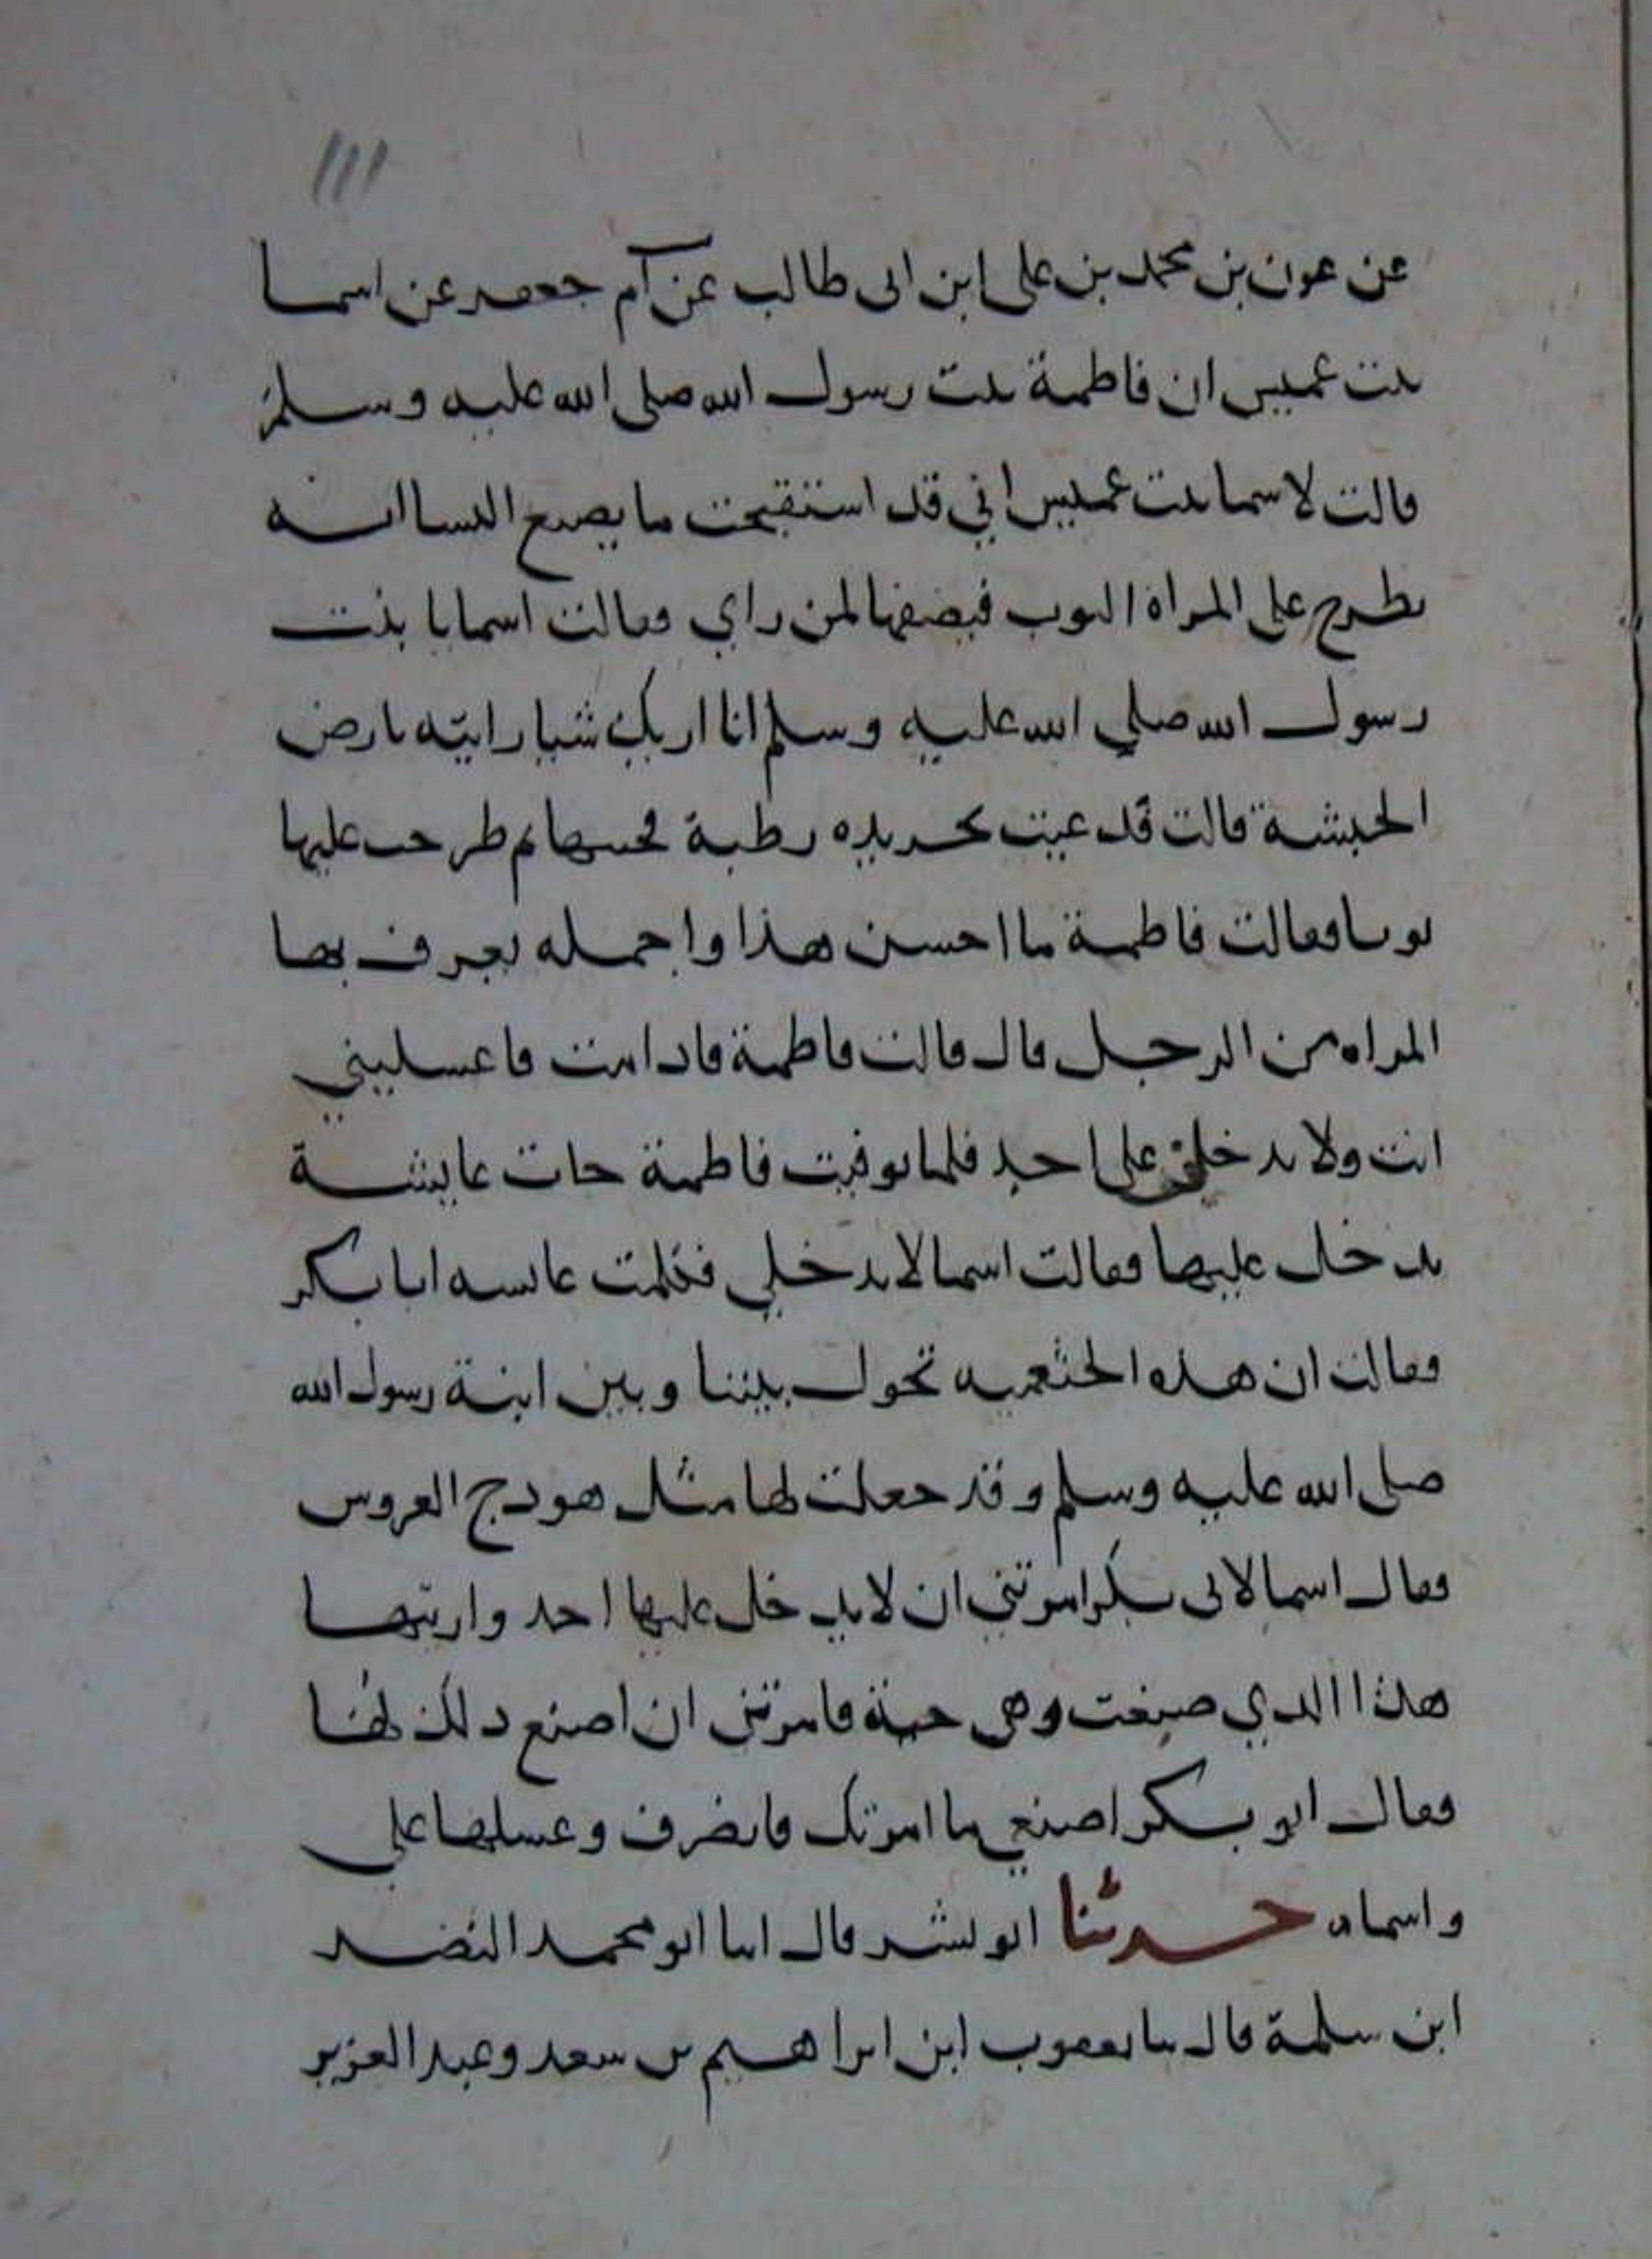 ١١١
عن عون بن محمد بن على ابن ابى طالب عن آم جعفر عن اسما
بنت عميس ان فاطمة بنت رسول الله صلى الله عليه وسلم
قالت لاسما بنت عميس اني قد استقبحت ما يصنع النسا انه
يطرح على المراة الثوب فيصفها لمن راي فقالت اسما يا بنت
رسول الله صلي الله عليه وسلم انا اريك شيا رايته بارض
الحبشة قالت قد عيت بجريده رطبة فحستها ثم طرحت عليها
ثوبا فقالت فاطمة ما احسن هذا واجمله تعرف بها
المراه من الرجل قال قالت فاطمة فاذا مت فاغسليني
انت ولا يدخلن على احد فلما توفيت فاطمة جات عايشة
تدخل عليها فقالت اسما لا تدخلي فكلمت عايشه ابا بكر
فقالت ان هذه الخثعميه تحول بيننا وبين ابنة رسول الله
صلى الله عليه وسلم وقد جعلت لها مثل هودج العروس
فقال اسما لابى بكر امرتني ان لا يدخل عليها احد واريتها
هذا الذي صنعت وهي حية فامرتني ان اصنع ذلك لها
فقال ابو بكر اصنعي ما امرتك فانصرف وغسلها علي
واسما حدثنا ابو بشر قال انبا ابو محمد النضد
ابن سلمة قال نبا يعقوب ابن ابراهيم بن سعد وعبد العزيز